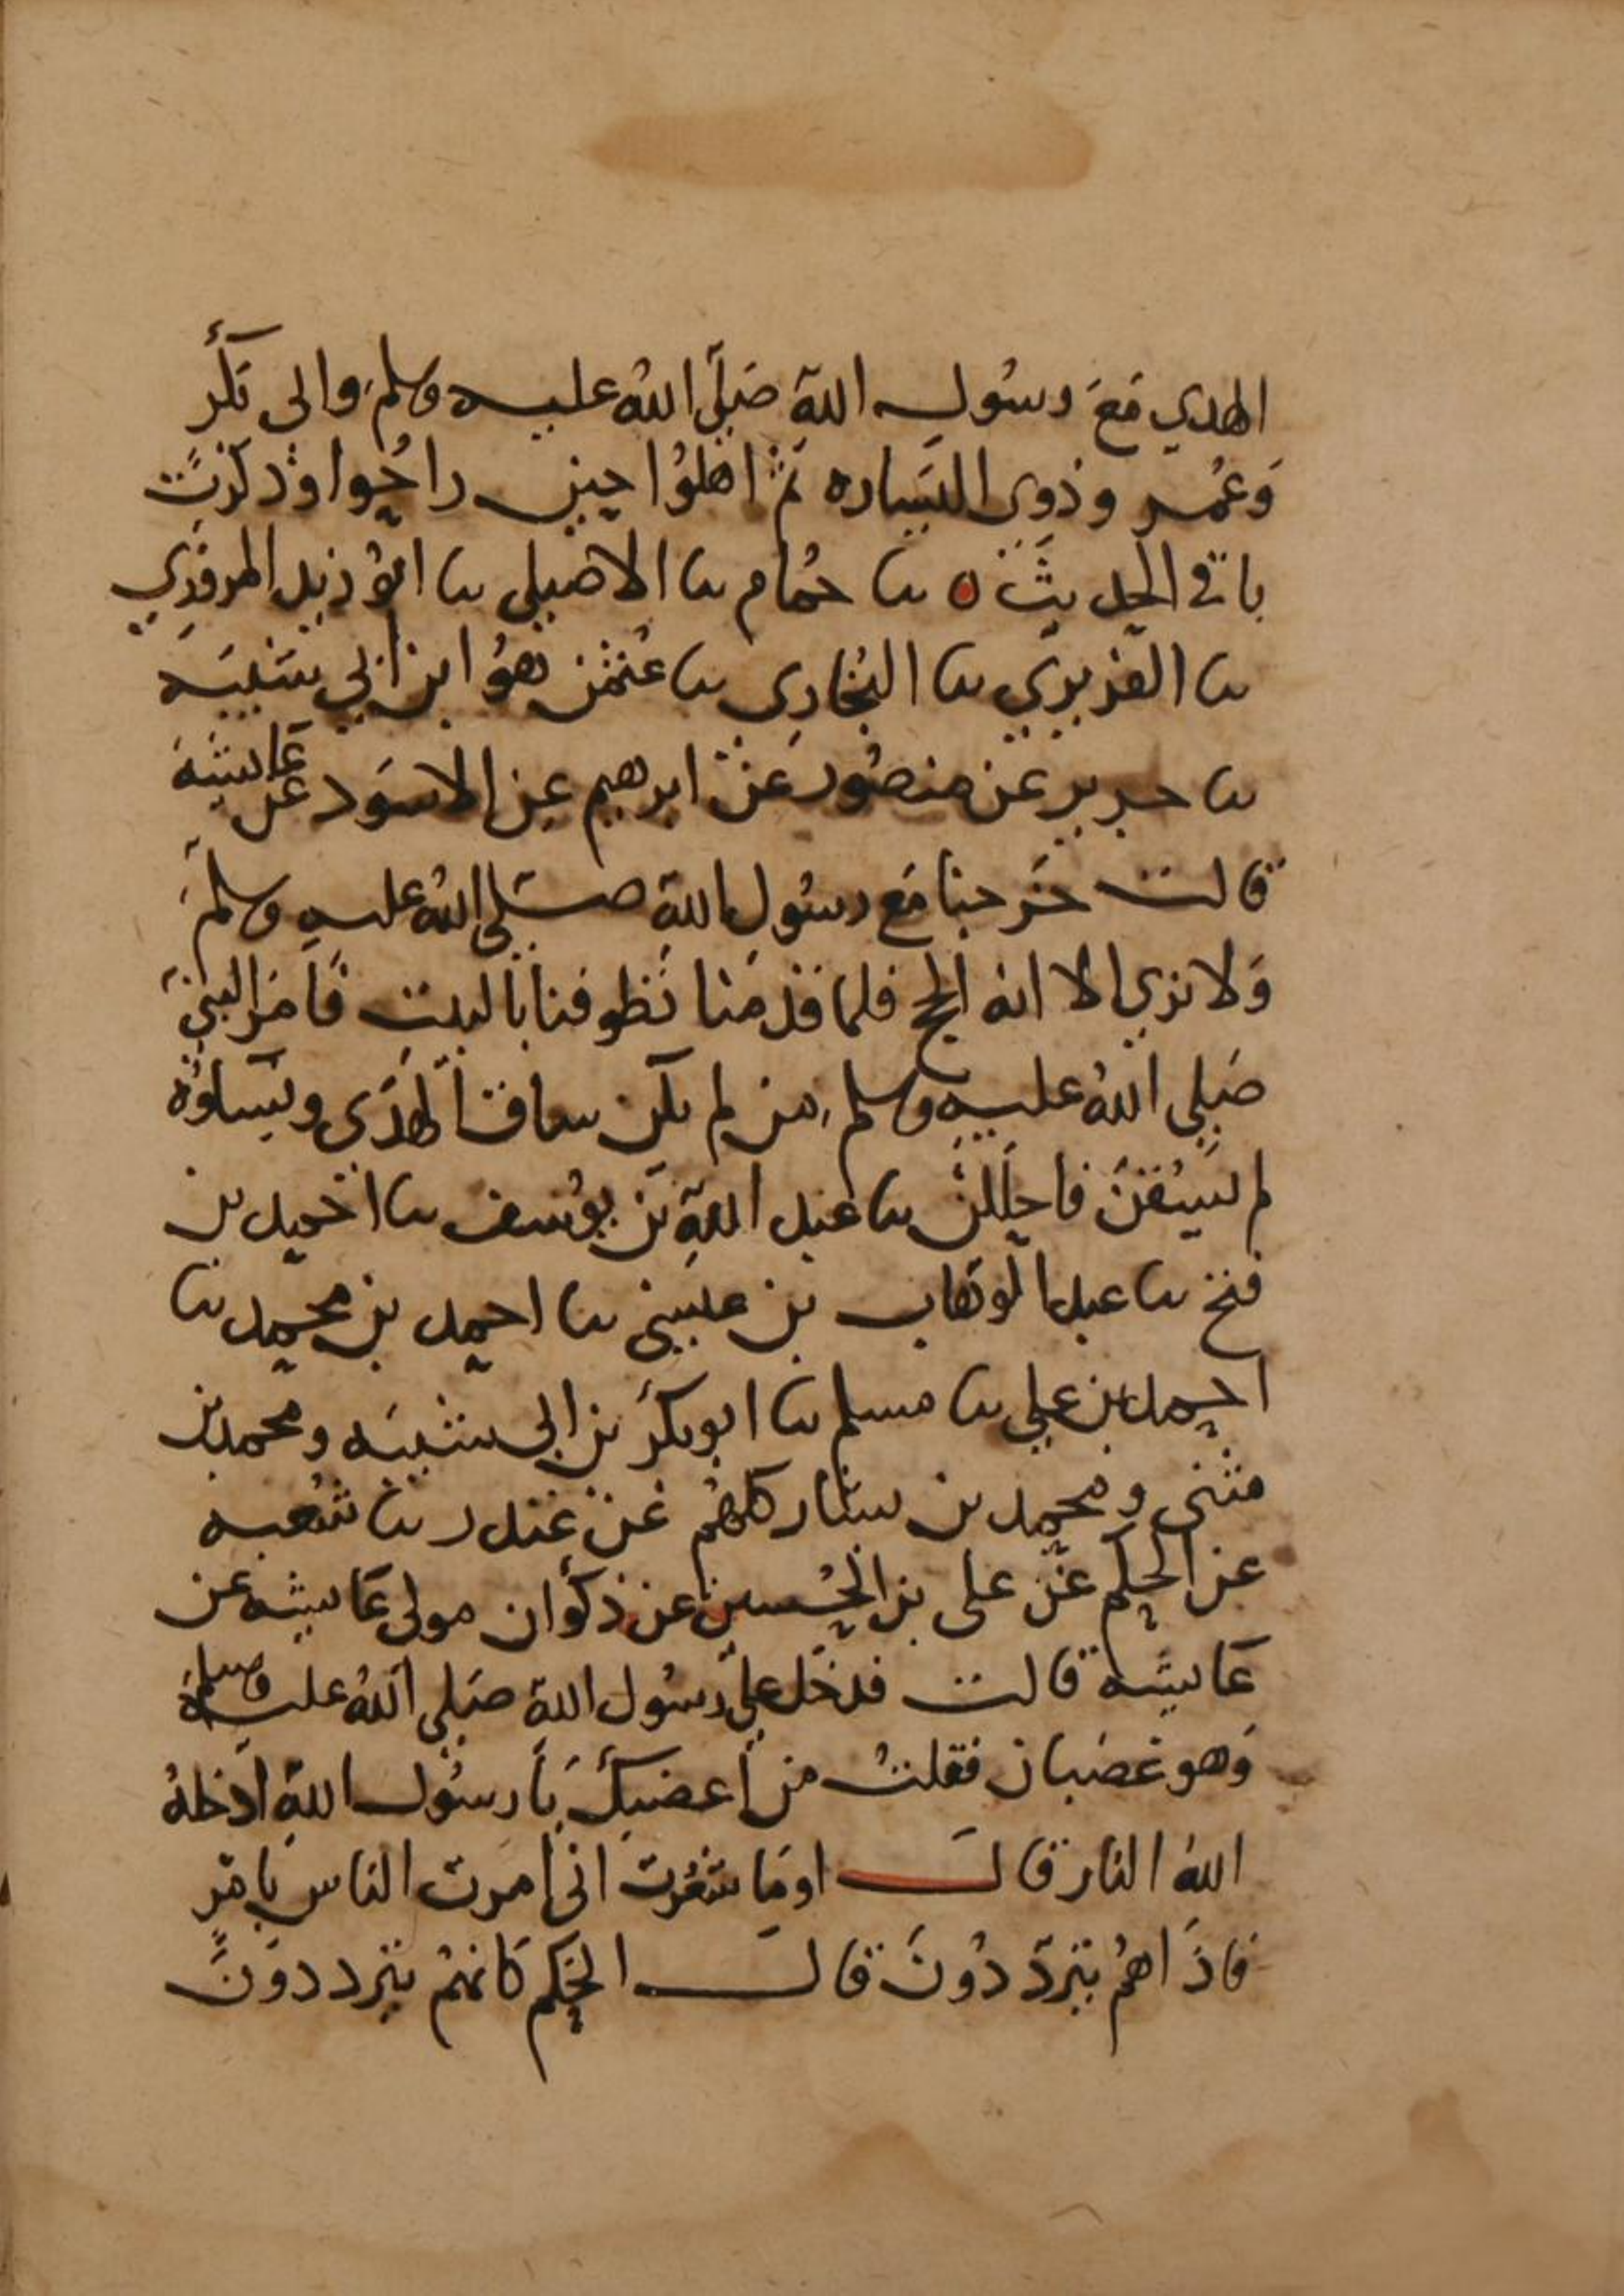 الهدي مَعَ رسُول اللهِ صَلَّى اللهُ عليه وسلم وابى بَكْرٍ
وَعُمر وذوى اليَسَاره ثمَّ اهلوُا حين راحُوا وَذكرَت
باقي الحديث ٥ نا حُمَام نا الاصيلى نا ابوُ زيد المروَزي
نا الفربري نا البُخاري نا عُثمن هوُ ابن ابي شَيْبَه
نا جرير عن منصُور عن ابرهيم عن الاسوَد عن عَايشَة
قالت خَرجنا مَع رسُول اللهِ صَلى اللهُ عليه وسلم
وَلا نرى الا انه الحج فلما قدمنا تطَوفنا بالبيت فأمَر النبيُّ
صَلى اللهُ عليه وسلم من لم يكن ساق الهَدَى ونساوُه
لم يَسُقنَ فاحلَلنَ نا عَبد اللهِ بن يوُسف نا احمد بن
فتح نا عبد الوَهاب بن عيسى نا احمد بن محمد نا
احمد بن علي نا مسلم نا ابو بكرَ بن ابى شيبَه ومحمد بن
مثنى ومحمد بن بشار كلهُم عَن غندر نا شُعبه
عن الحكم عَن على بن الحُسين عن ذكْوان مولى عَايشه عن
عَايشَه قالت فدخَل عليَّ رسُول اللهِ صَلى اللهُ عليه وسلم
وَهو غضبان فقلتُ من أغضبكَ يَا رسُول اللهِ ادخلهُ
اللهُ النار قال اومَا شَعُرت انى امرت الناس بامْرٍ
فاذَا هُم يترَدّدُونَ قال الحكم كانهُم يترددوَنَ